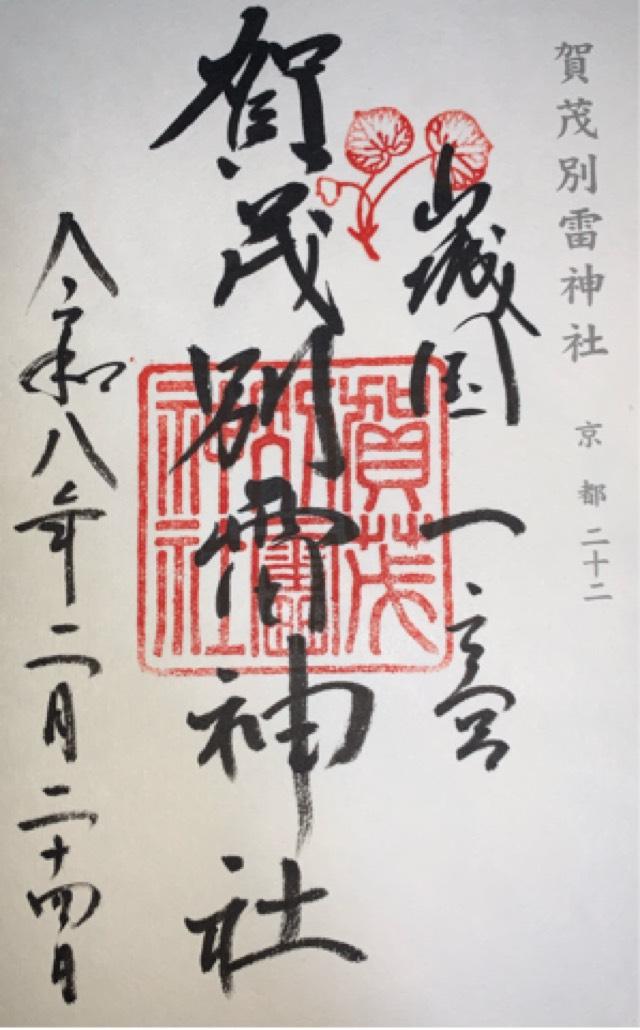 賀茂別雷神社 京都二十二
山城国一之宮
賀茂別雷神社
賀茂別雷神社
令和八年二月二十四日